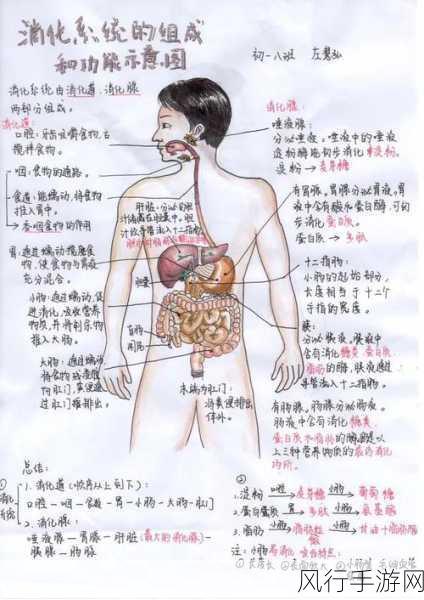 消化系统的组成
和功能示意图
初一八班
消化系统由消化道、消化腺
两部分组成。
消化道:
口腔:牙齿咀嚼食物,舌
搅拌食物。
咽:食物的通路。
食道:能蠕动,将食物
推入胃中。
→吞咽食物的作用
胃:通过蠕动搅磨食
物,使食物与胃液
充分混合。
小肠:通过蠕动,促
进消化,吸收营养
物质,并将剩食物
推入大肠。
大肠:通过蠕动
将食物残渣
肛门,粪便通
过肛门排出。
肝脏:分泌的胆
汁储藏在胆囊中,胆
汁经导管流入十二指肠
胆囊
盲肠
阑尾
末端为肛门:
将粪便排出
体外。
消化腺:
唾液腺:
分泌唾液,唾液中的唾液
淀粉酶能初步消化
淀粉→麦芽糖
有胃腺,胃腺分泌胃液,胃
液中含有盐酸和蛋白酶,可初
步消化蛋白质。
蛋白质→多肽
十二指肠:
小肠的起始部分,
长度相当于十二个
手指的宽度。
胰:
分泌胰液,胰液中
含有消化糖类、蛋白质、
脂肪的酶,胰液通过
导管流入十二指肠。
有肠腺,肠腺分泌肠液。
肠液中含有消化糖类、
蛋白质和脂肪的酶,是以
上三种营养物质的最终消化
场所。
总结:
① 消化系统
1.消化道(顺序从上到下):
口腔—咽—食道—胃—小肠—大肠—肛门
2.消化腺:
唾液腺—胃腺—肝脏(最大的消化腺)—
胰腺—肠腺
②
1.淀粉 口腔→ 麦芽糖 小肠→ 葡萄糖
2.蛋白质 胃→ 多肽 小肠→ 氨基酸
3.脂肪 小肠→ 脂肪微粒 小肠→ 甘油+脂肪酸
注:小肠
风行手游网